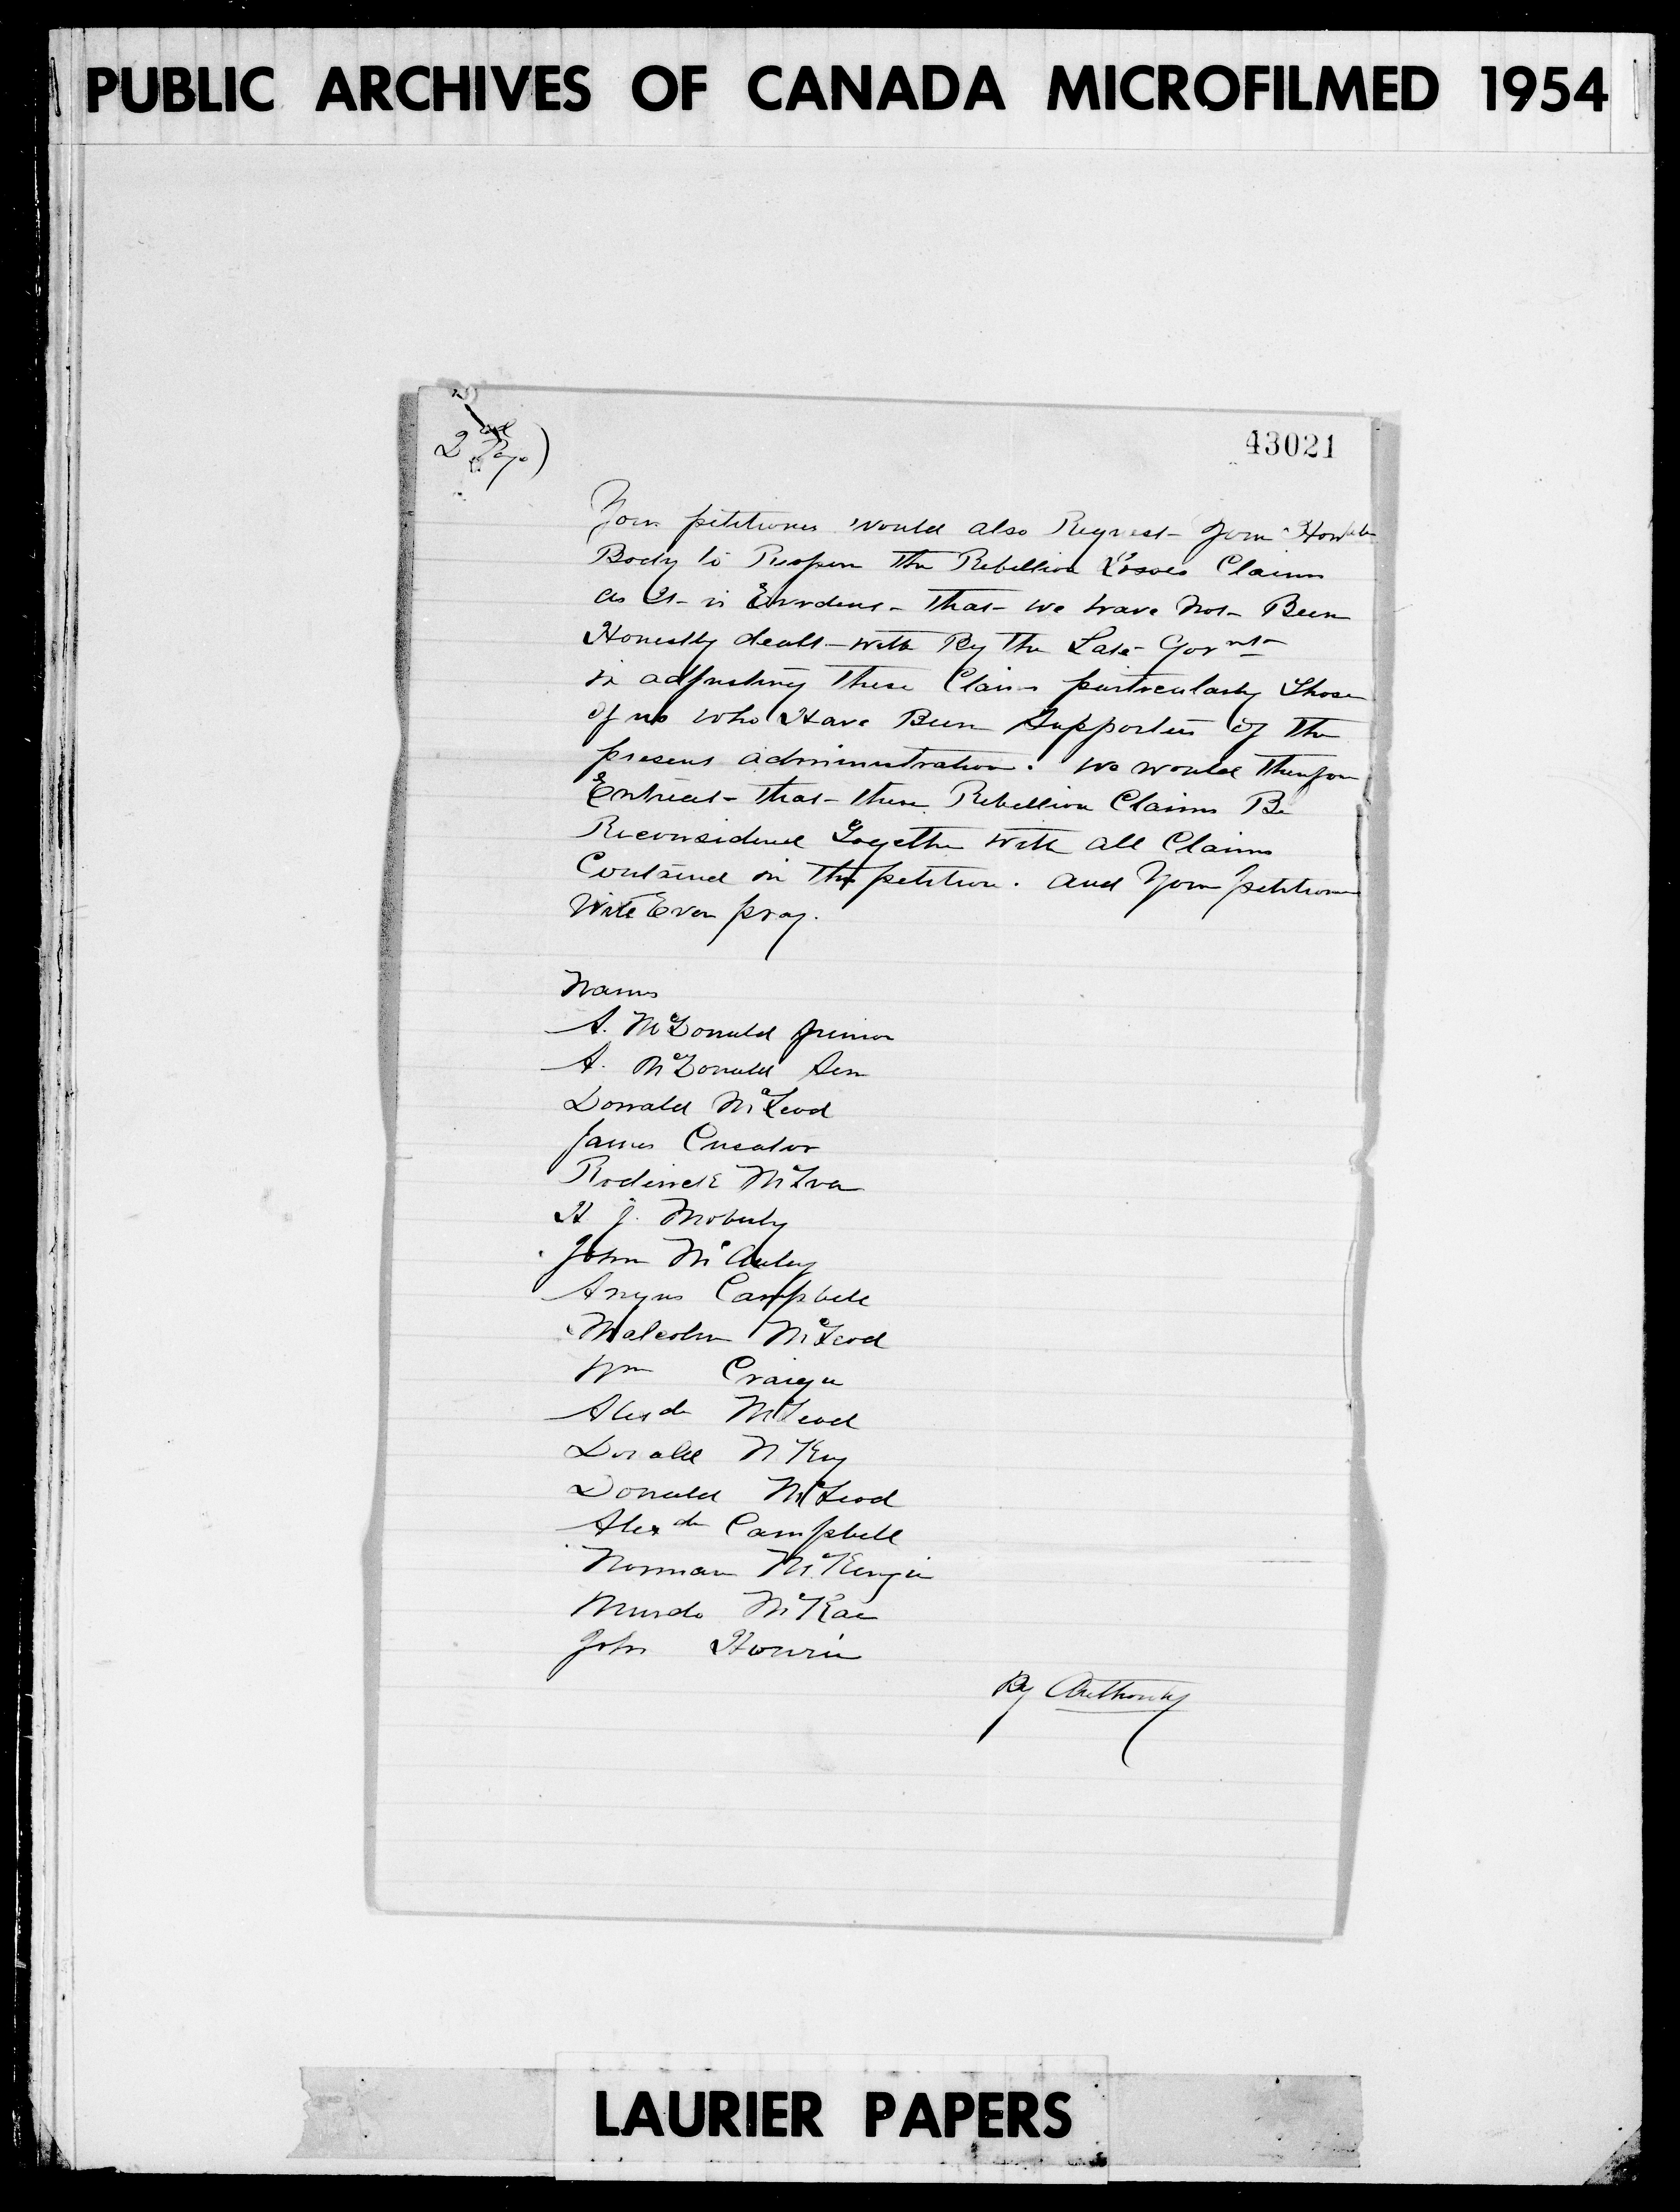 PUBLIC ARCHIVES OF CANADA MICROFILMED 1954
2nd Page)
43021
Your petitioners would also Request Your Honble
Body to Reopen the Rebellion Losses Claims
as It is Evident that we have not Been
Honestly dealt with By the Late Govmt
in adjusting These Claims particularly Those
of us who Have Been Supporters of the
present administration. we would Therefore
Entreat that these Rebellion Claims Be
Reconsidered Together with all Claims
Contained in this petition. and Your petitioners
Will Ever pray.
Names
A. McDonald Junior
A. McDonald Sen
Donald McLeod
James
Roderick
H J. Moberly
John McAuley
Angus Campbell
Malcolm McLeod
Wm Craigie
Alexdr McLeod
Donald McKay
Donald McLeod
Alexdr Campbell
Norman McKenzie
Murdo McRae
John Hourie
By Authority
LAURIER PAPERS